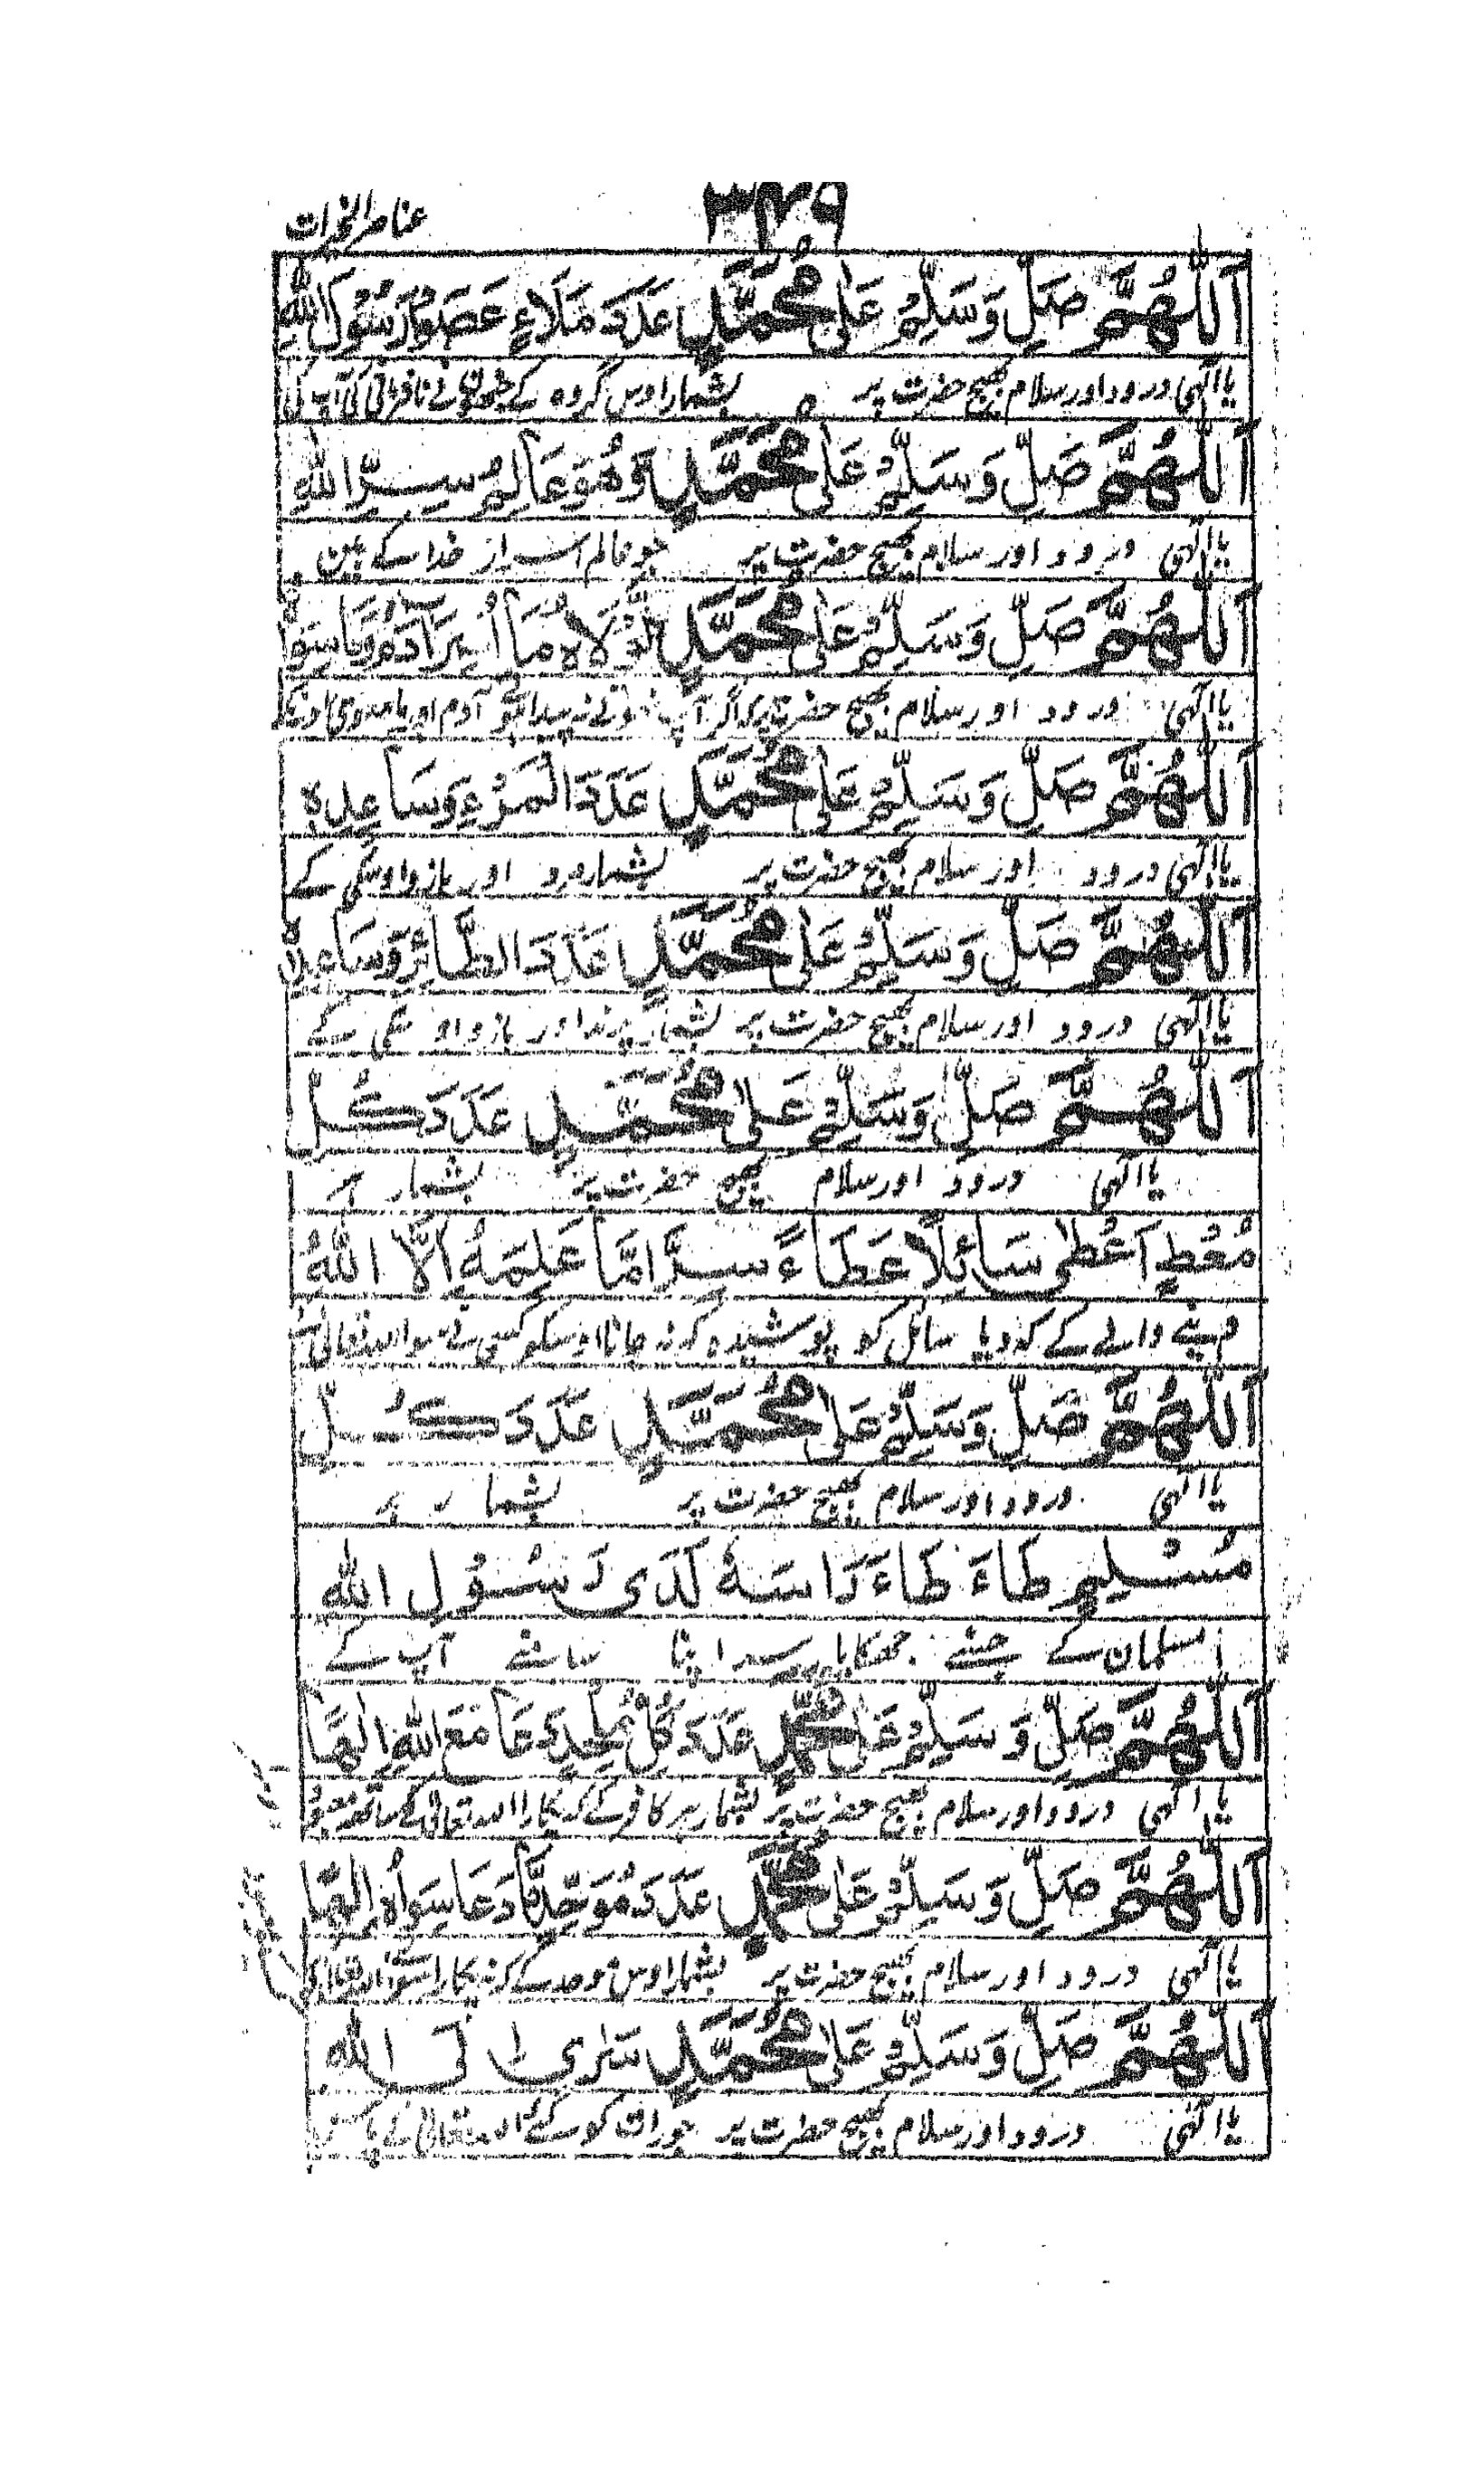 عناصر الخیرات
۳۴۹
اَللّٰهُمَّ صَلِّ وَسَلِّمْ عَلٰی مُحَمَّدٍ عَدَدَ مَلَاءٍ عَصَوْا رَسُوْلَ اللهِ
یا الٰهی درود اور سلام بھیج حضرت پر بشمار اوس گروه کے نافرمانی کی آپ کی
اَللّٰهُمَّ صَلِّ وَسَلِّمْ عَلٰی مُحَمَّدٍ وَهُوَ عَالِمُ سِرِّ اللهِ
یا الٰهی درود اور سلام بھیج حضرت پر جو عالم اسرار خدا کے ہین
اَللّٰهُمَّ صَلِّ وَسَلِّمْ عَلٰی مُحَمَّدٍ لَوْلَاهُ مَا اٰدَمُ وَمَا سِوَاهُ
یا الٰهی درود اور سلام بھیج حضرت پر اگر آپ نہوتے نہ پیدا آدم اور
اَللّٰهُمَّ صَلِّ وَسَلِّمْ عَلٰی مُحَمَّدٍ عَدَدَ الْمَرْءِ وَسَاعِدِهٖ
یا الٰهی درود اور سلام بھیج حضرت پر بشمار مرد اور بازو اوسکی کے
اَللّٰهُمَّ صَلِّ وَسَلِّمْ عَلٰی مُحَمَّدٍ عَدَدَ الطَّائِرِ وَسَاعِدِهٖ
یا الٰهی درود اور سلام بھیج حضرت پر بشمار پرند اور بازو اوسکی کے
اَللّٰهُمَّ صَلِّ وَسَلِّمْ عَلٰی مُحَمَّدٍ عَدَدَ كُلِّ
یا الٰهی درود اور سلام بھیج حضرت پر بشمار ہر
مُعْطٍ اَعْطٰی سَائِلًا عَطَاءً سِرًّا مَّا عَلِمَهُ اِلَّا اللهُ
دینے والے کے کہ دیا سائل کو پوشیده کہ نہ جانا اوسکو کسی نے سوا الله تعالی
اَللّٰهُمَّ صَلِّ وَسَلِّمْ عَلٰی مُحَمَّدٍ عَدَدَ كُلِّ
یا الٰهی درود اور سلام بھیج حضرت پر بشمار ہر
مُسْلِمٍ طَاءَ طَاءَ رَاسَهٗ لَدٰی رَسُوْلِ اللهِ
مسلمان کے جسنے جھکایا سر اپنا سامنے آپ کے
اَللّٰهُمَّ صَلِّ وَسَلِّمْ عَلٰی مُحَمَّدٍ عَدَدَ كُلِّ مُلْحِدٍ دَعَا مَعَ اللهِ اِلٰهًا
یا الٰهی درود اور سلام بھیج حضرت پر بشمار ہر کافر کے کہ پکارا الله تعالی کے ساتھ
اَللّٰهُمَّ صَلِّ وَسَلِّمْ عَلٰی مُحَمَّدٍ عَدَدَ مُوَحِّدٍ مَّا دَعَا سِوَاهُ اِلٰهًا
یا الٰهی درود اور سلام بھیج حضرت پر بشمار اوس موحد کے کہ نہ پکارا
اَللّٰهُمَّ صَلِّ وَسَلِّمْ عَلٰی مُحَمَّدٍ سَرٰی اِلَی اللهِ
یا الٰهی درود اور سلام بھیج حضرت پر جو رات کو گئے الله تعالی کے پاس